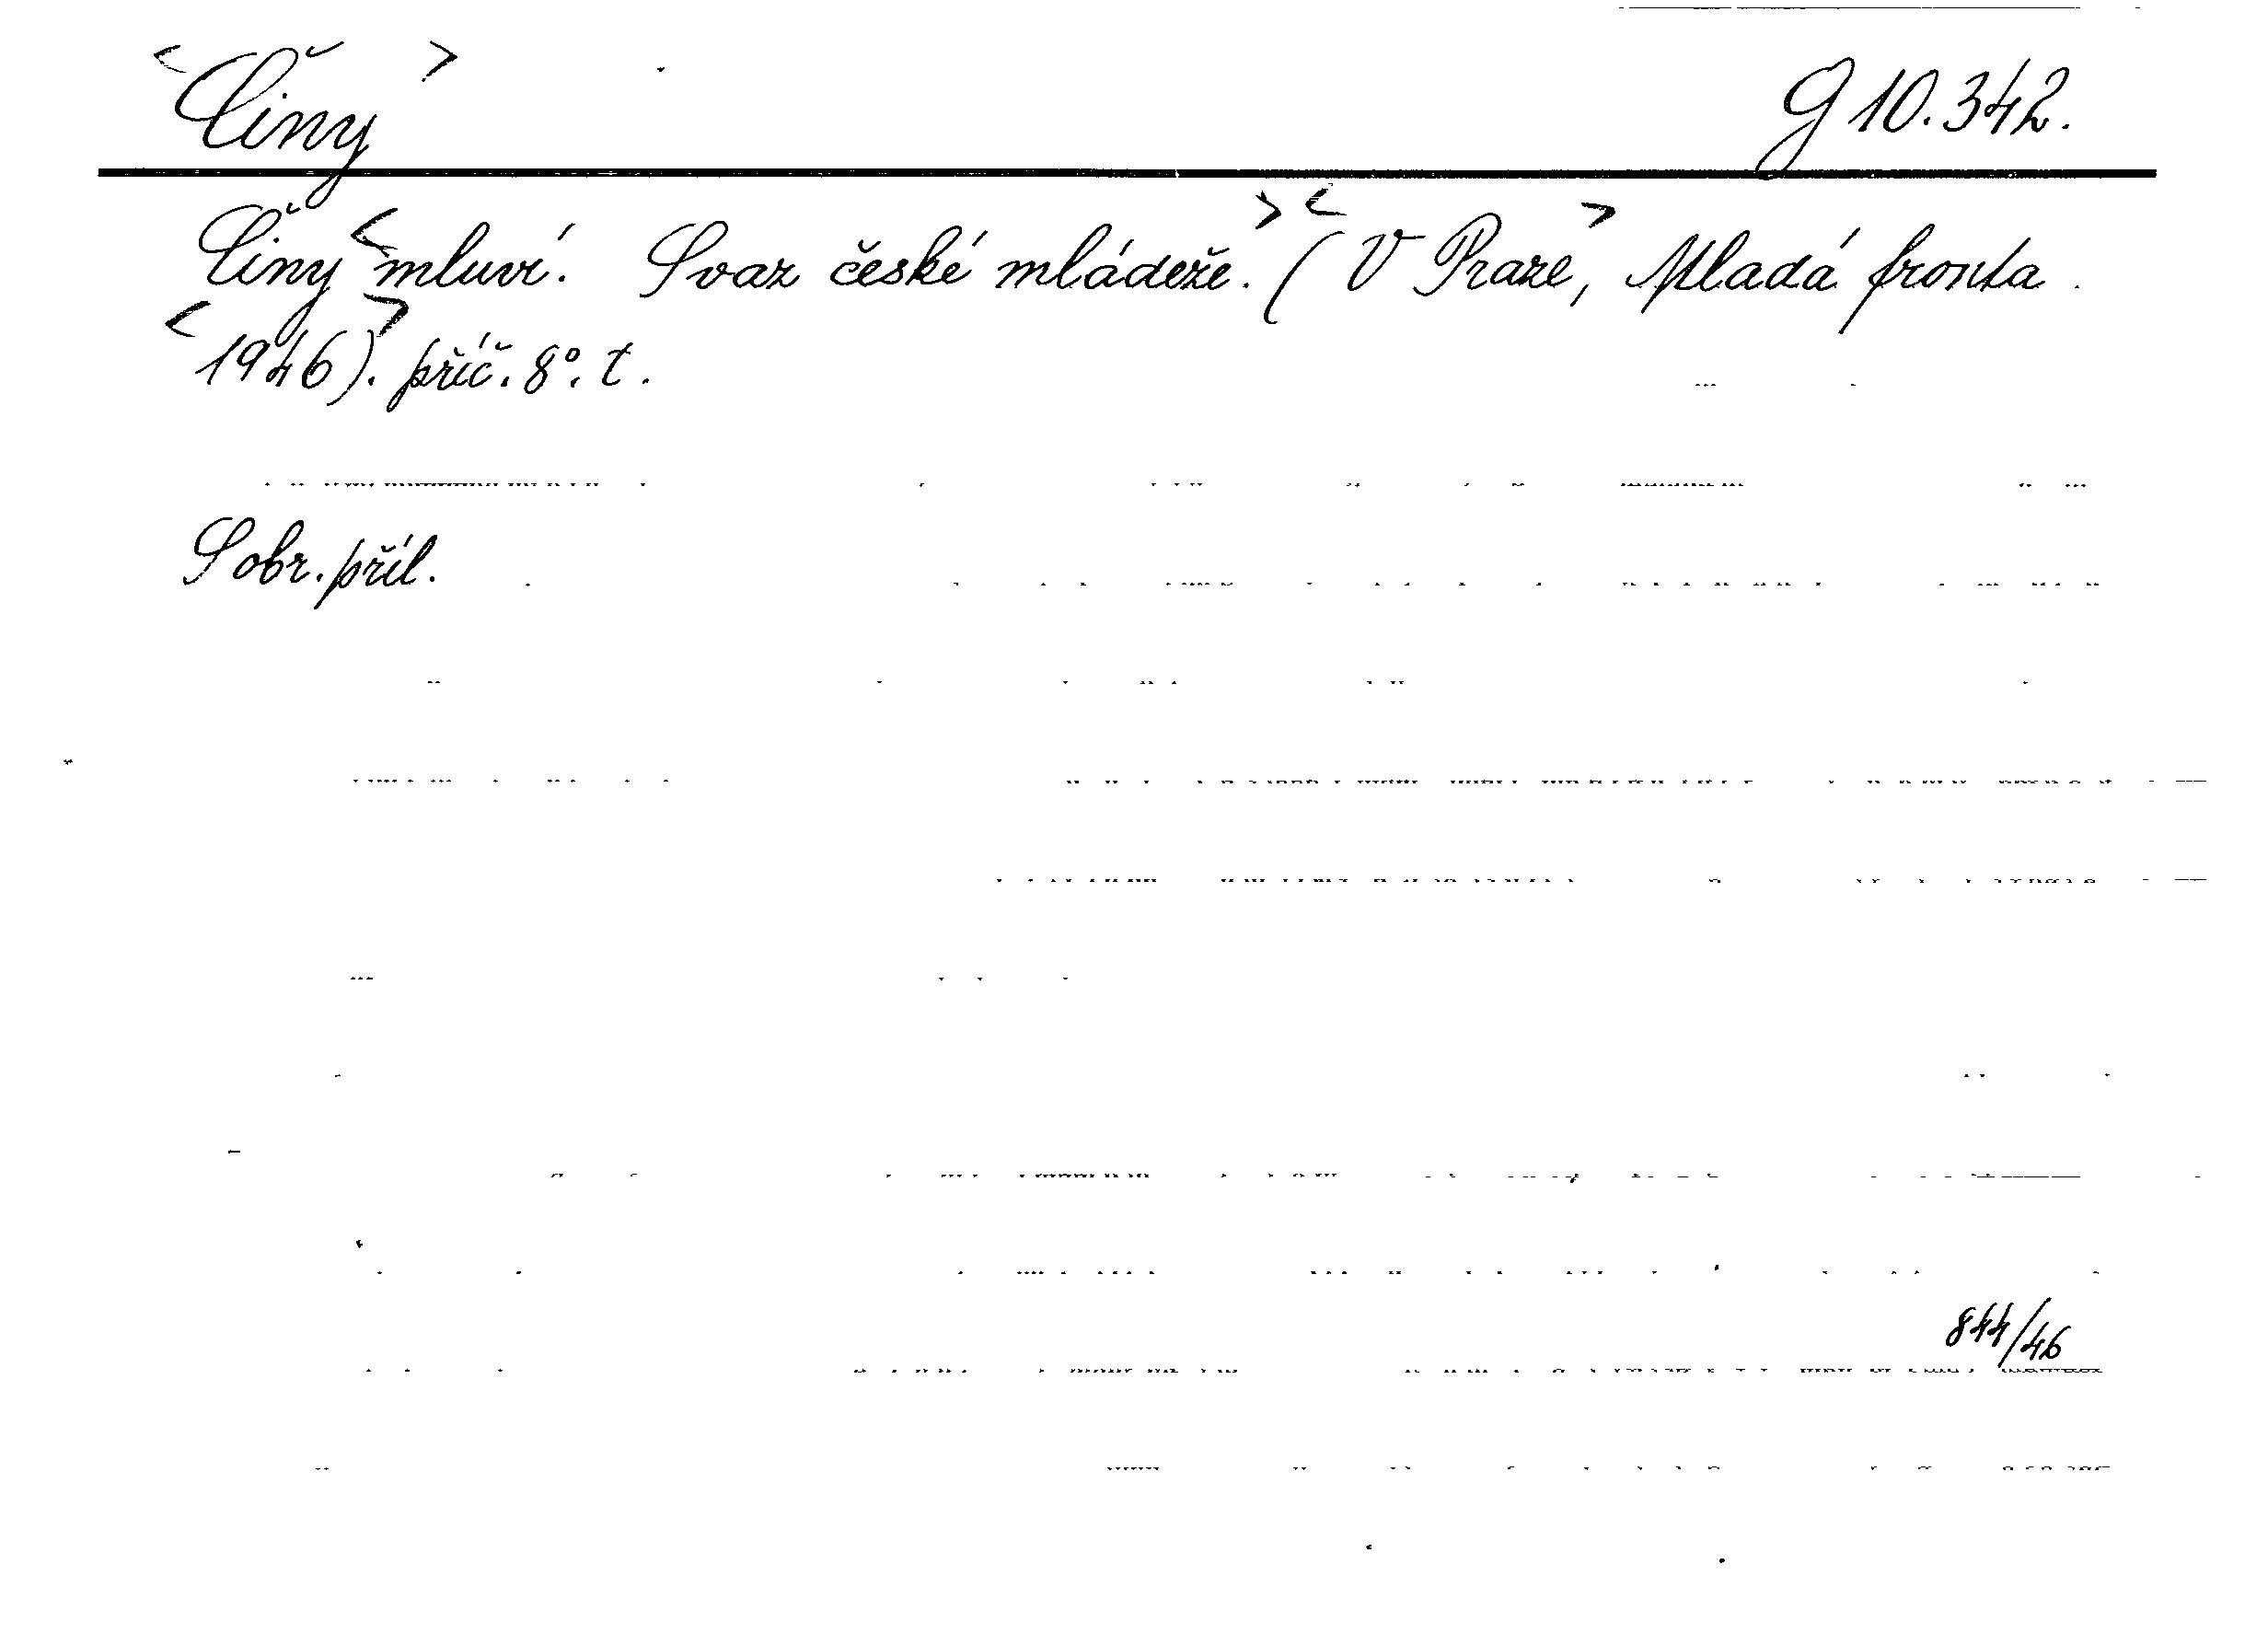 <Činy> G 10.342.
Činy <mluví. Svaz české mládeže.> (<V Praze,> Mladá fronta
<1946>). příč. 8°. t.
S obr. příl.
844/46